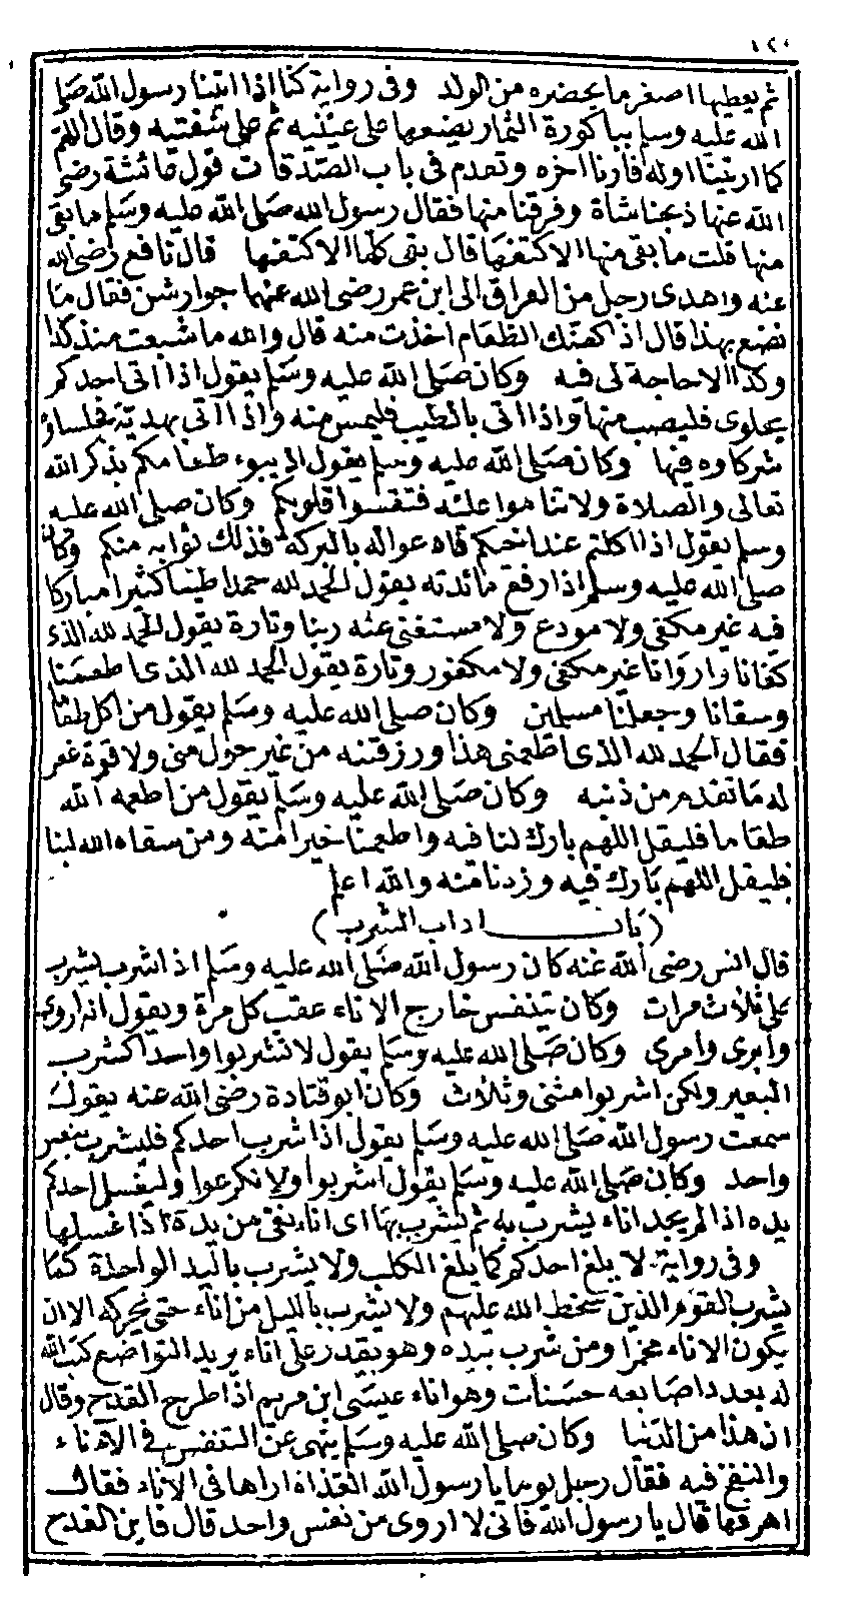 ١٢٠
ثم يعطيها اصغر ما يحضره من الولد وفى رواية كنا اذا اتينا رسول الله صلى
الله عليه وسلم بباكورة الثمار يضعها على عينيه ثم على شفتيه وقال اللهم
كما اريتنا اوله فأرنا اخره وتقدم فى باب الصدقات قول عائشة رضى
الله عنها ذبحنا شاة وفرقنا منها فقال رسول الله صلى الله عليه وسلم ما بقى
منها قلت ما بقى منها الا كتفها قال بقى كلها الا كتفها قال نافع رضى الله
عنه واهدى رجل من العراق الى ابن عمر رضى الله عنهما جوارشن فقال ما
نصنع بهذا قال اذا كظك الطعام اخذت منه قال والله ما شبعت منذ كذا
وكذا لا حاجة لى فيه وكان صلى الله عليه وسلم يقول اذا اتى احدكم
بحلوى فليصب منها واذا اتى بالطيب فليمس منه واذا اتى بهدية فجلساؤه
شركاوه فيها وكان صلى الله عليه وسلم يقول اذيبوا طعامكم بذكر الله
تعالى والصلاة ولا تناموا عليه فتقسوا قلوبكم وكان صلى الله عليه
وسلم يقول اذا اكلتم عند اخيكم فادعوا له بالبركة فذلك ثوابه منكم وكان
صلى الله عليه وسلم اذا رفع مائدته يقول الحمد لله حمدا طيبا كثيرا مباركا
فيه غير مكفى ولا مودع ولا مستغنى عنه ربنا وتارة يقول الحمد لله الذى
كفانا واروانا غير مكفى ولا مكفور وتارة يقول الحمد لله الذى اطعمنا
وسقانا وجعلنا مسلمين وكان صلى الله عليه وسلم يقول من اكل طعاما
فقال الحمد لله الذى اطعمنى هذا ورزقنيه من غير حول منى ولا قوة غفر
له ما تقدم من ذنبه وكان صلى الله عليه وسلم يقول من اطعمه الله
طعاما فليقل اللهم بارك لنا فيه واطعمنا خيرا منه ومن سقاه الله لبنا
فليقل اللهم بارك فيه وزدنا منه والله اعلم
(باب اداب الشرب)
قال انس رضى الله عنه كان رسول الله صلى الله عليه وسلم اذا شرب يشرب
على ثلاث مرات وكان يتنفس خارج الاناء عقب كل مرة ويقول انه اروى
وابرى وامرى وكان صلى الله عليه وسلم يقول لا تشربوا واحدا كشرب
البعير ولكن اشربوا مثنى وثلاث وكان ابو قتادة رضى الله عنه يقول
سمعت رسول الله صلى الله عليه وسلم يقول اذا شرب احدكم فليشرب بنفس
واحد وكان صلى الله عليه وسلم يقول اشربوا ولا تكرعوا وليغسل احدكم
يده اذا لم يجد اناء يشرب به ثم يشرب بها اى اناء نقى من يده اذا غسلها
وفى رواية لا يلغ احدكم كما يلغ الكلب ولا يشرب باليد الواحدة كما
يشرب القوم الذين سخط الله عليهم ولا يشرب بالليل من اناء حتى يحركه الا ان
يكون الاناء مخمرا ومن شرب بيده وهو يقدر على اناء يريد التواضع كتب الله
له بعدد اصابعه حسنات وهو اناء عيسى ابن مريم اذا طرح القدح وقال
ان هذا من الدنيا وكان صلى الله عليه وسلم ينهى عن التنفس فى الاناء
والنفخ فيه فقال رجل يوما يا رسول الله القذاة اراها فى الاناء فقال
اهرقها قال يا رسول الله فانى لا اروى من نفس واحد قال فابن القدح